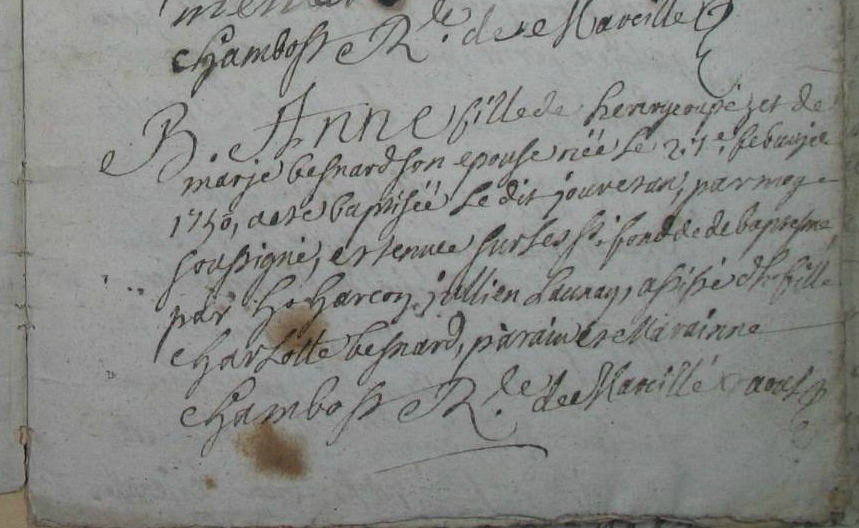 chambost R.de de Marcillé
B. Anne fille de henry coupé et de
marie besnard son epouse néé le 21e febvrje
1750, a eté baptiséé le dit jour et an, par moy
soussigné, et tenue sur les st. fond de bapresme
par h. Harcoy jullien Launay, assisté d'h. fille
charlotte besnard, parain et Marainne
chambost R.de de Marcillé